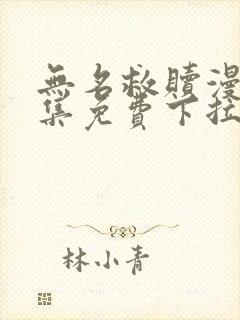 無名救贖漫
集免費下拉
林小青